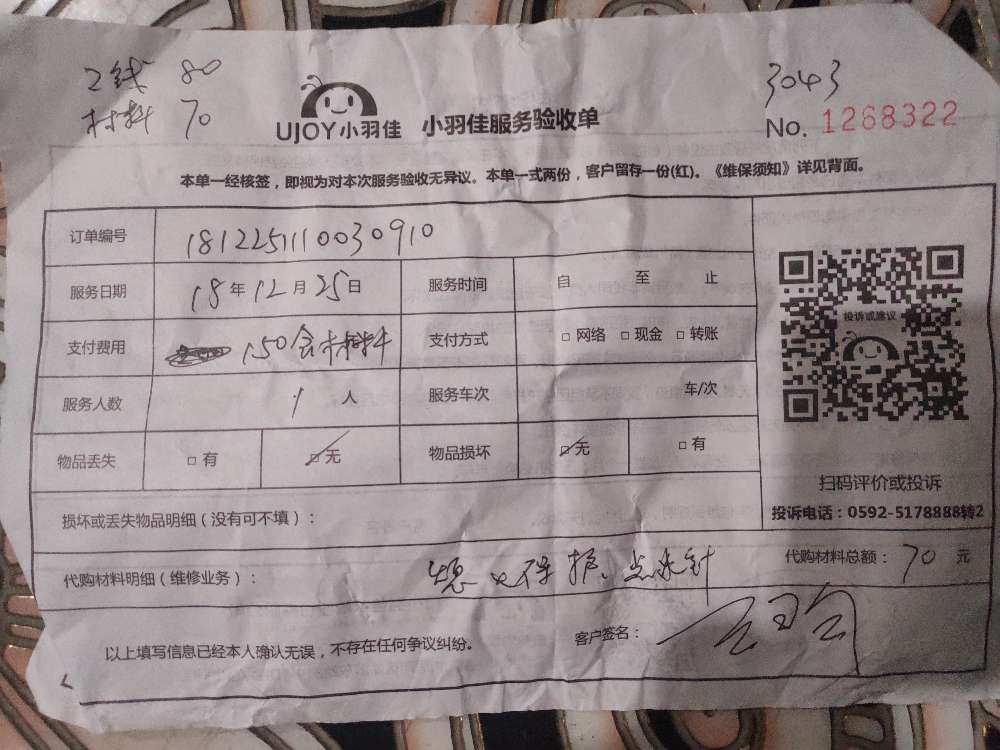 工钱 80
材料 70
3043
UJOY小羽佳 小羽佳服务验收单
No. 1268322
本单一经核签，即视为对本次服务验收无异议。本单一式两份，客户留存一份(红)。《维保须知》详见背面。
订单编号 1812251110030910
服务日期 18年12月25日 服务时间 自 至 止
支付费用 150含材料 支付方式 □网络 □现金 □转账
服务人数 1人 服务车次 车/次
物品丢失 □有 □无 物品损坏 □无 □有
投诉或建议
扫码评价或投诉
投诉电话：0592-5178888转2
损坏或丢失物品明细（没有可不填）：
代购材料明细（维修业务）： 保护、点火针
代购材料总额：70元
以上填写信息已经本人确认无误，不存在任何争议纠纷。
客户签名：